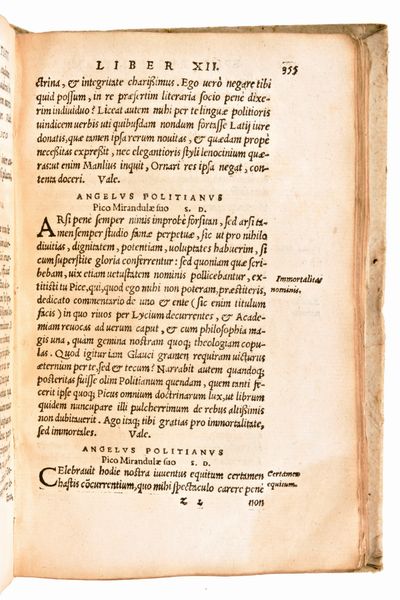 LIBER XII. 355
ctrina, & integritate charissimus. Ego uerò negare tibi
quid possum, in re præsertim literaria socio penè dixe-
rim indiuiduo? Liceat autem mihi per te linguæ politioris
uindicem uerbis uti quibusdam nondum fortasse Latij iure
donatis, quæ tamen ipsa rerum nouitas, & quædam propè
necessitas expressit, nec elegantioris styli lenocinium quæ-
ras: ut enim Manlius inquit, Ornari res ipsa negat, con-
tenta doceri. Vale.
ANGELVS POLITIANVS
Pico Mirandulæ suo S. D.
ARsi penè semper nimis improbè forsan, sed arsi ta-
men semper studio famæ perpetuæ, sic ut pro nihilo
diuitias, dignitatem, potentiam, uoluptates habuerim, si
cum superstite gloria conferrentur: sed quoniam quæ scri-
bebam, uix etiam uetustatem nominis pollicebantur, ex-
titisti tu Pice, qui, quod ego mihi non poteram, præstiteris,
dedicato commentario de uno & ente (sic enim titulum
facis) in quo riuos per Lycium decurrentes, & Acade-
miam reuocas ad uerum caput, & cum philosophia ma-
gis una, quàm gemina nostram quoq; theologiam copu-
las. Quod igitur iam Glauci gramen requiram uicturus
æternum per te, sed & tecum? Narrabit autem quandoq;
posteritas fuisse olim Politianum quendam, quem tanti fe-
cerit ipse quoq; Picus omnium doctrinarum lux, ut librum
quidem nuncupare illi pulcherrimum de rebus altissimis
non dubitauerit. Ago itaq; tibi gratias pro immortalitate,
sed immortales. Vale.
Immortalitas
nominis.
ANGELVS POLITIANVS
Pico Mirandulæ suo S. D.
CElebrauit hodie nostra iuuentus equitum certamen
hastis cõcurrentium, quo mihi spectaculo carere penè
Certamen
equitum.
Z 2 non